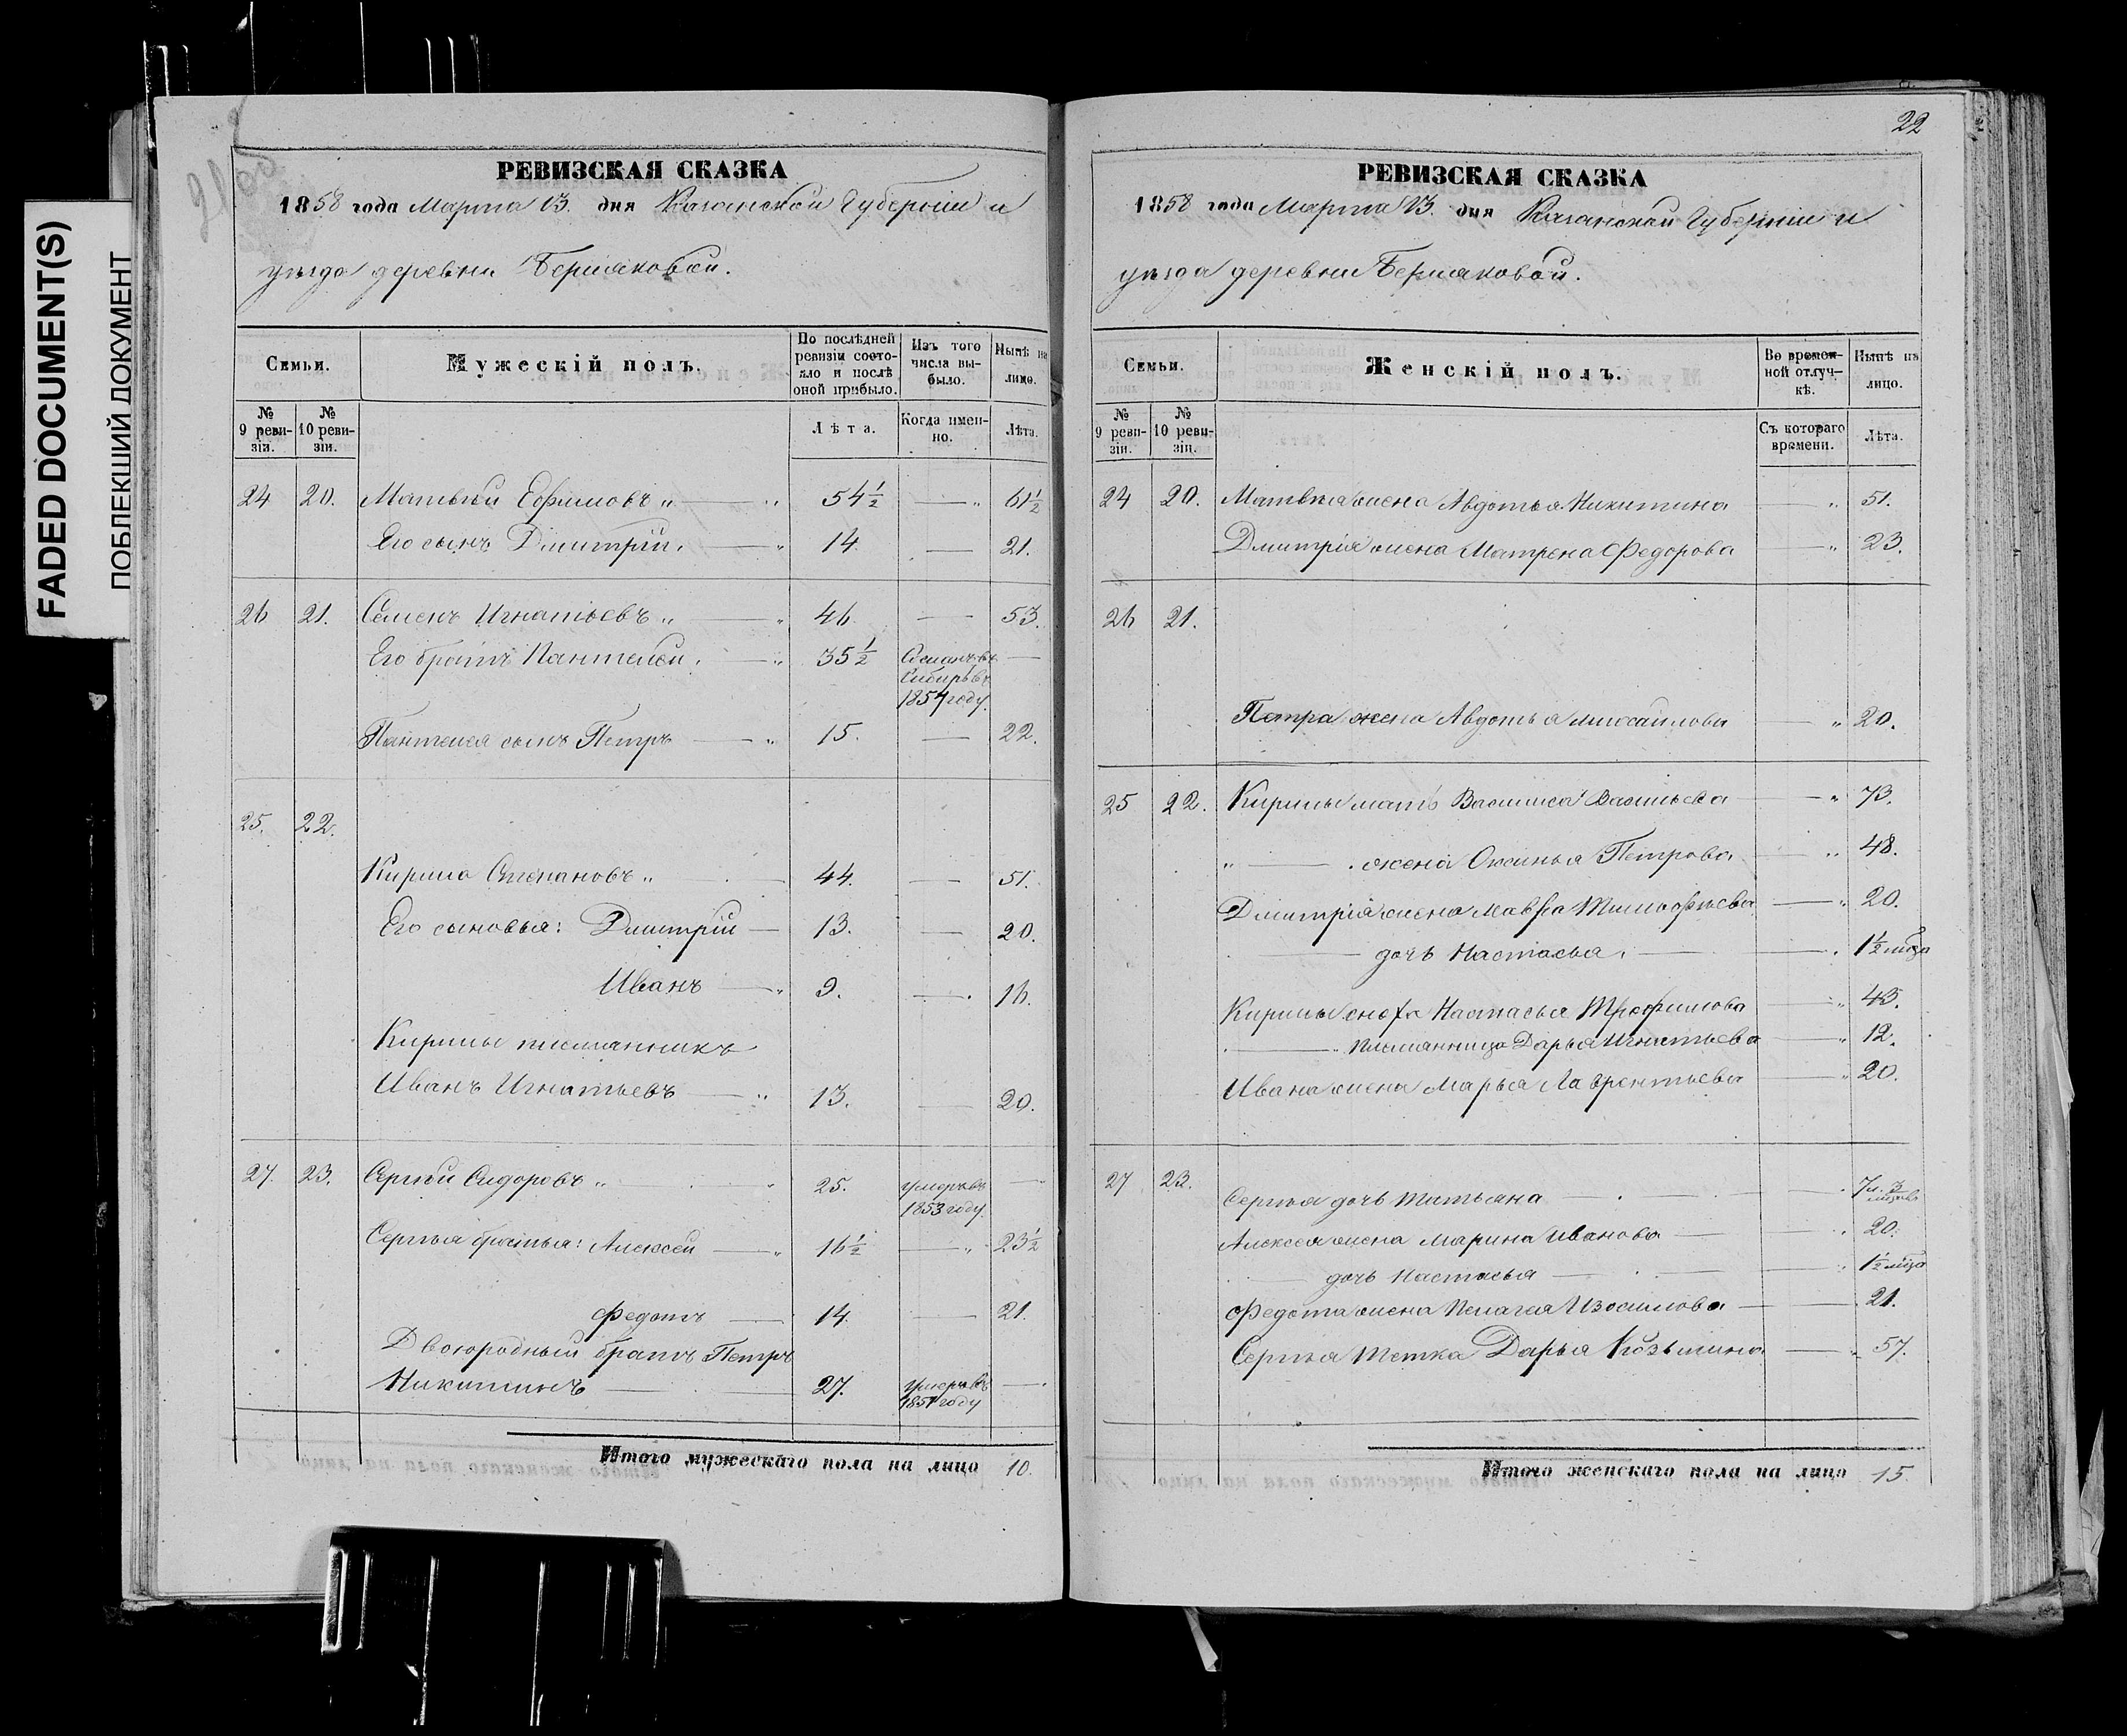 FADED DOCUMENT(S)
ПОБЛЕКШИЙ ДОКУМЕНТ
РЕВИЗСКАЯ СКАЗКА
1858 года Марта 13. дня Казанской Губерніи и
уѣзда деревни Бермяковой.
Семьи. Мужескій полъ. По послѣдней ревизіи состояло и послѣ оной прибыло. Изъ того числа выбыло. Нынѣ на лицо.
№ 9 ревизіи. № 10 ревизіи. Лѣта. Когда именно. Лѣта.
24 20. Матвѣй Ефимовъ „ — „ 54½ — „ 61½
Его сынъ Дмитрій. — „ 14. — 21.
26 21. Семенъ Игнатьевъ „ — „ 46 — 53.
Его братъ Пантелей. — „ 35½ Сосланъ въ —
Сибирь въ
1854 году.
Пантелея сынъ Петръ — „ 15. — 22.
25. 22.
Кирила Степановъ „ — 44. — 51.
Его сыновья: Дмитрій — 13. — 20.
Иванъ — „ 9. — 16.
Кирилы племянникъ
Иванъ Игнатьевъ — „ 13. — 20.
27. 23. Сергѣй Сидоровъ „ — „ 25. умеръ въ —
1853 году.
Сергѣя братья: Алексѣй — „ 16½ — „ 23½
Федотъ — 14. — 21.
Двоюродный братъ Петръ
Никитинъ — 27. умеръ въ —
1851 году
Итого мужескаго пола на лицо 10.
22
РЕВИЗСКАЯ СКАЗКА
1858 года Марта 13. дня Казанской Губерніи и
уѣзда деревни Бермяковой.
Семьи. Женскій полъ. Во временной отлучкѣ. Нынѣ на лицо.
№ 9 ревизіи. № 10 ревизіи. Съ котораго времени. Лѣта.
24 20. Матвѣя жена Авдотья Никитина — „ 51.
Дмитрія жена Матрена Федорова — „ 23.
26 21.
Петра жена Авдотья Михайлова — „ 20.
25 22. Кирилы мать Василиса Васильева — „ 73.
„ — . жена Оксинья Петрова — „ 48.
Дмитрія жена Мавра Тимофѣева — „ 20.
— дочь Настасья. — . 1½ мѣца
Кирилы сноха Настасья Трофимова — „ 43.
— „ племянница Дарья Игнатьева — „ 12.
Ивана жена Марья Лаврентьева — „ 20.
27 23.
Сергѣя дочь Татьяна — . 7 л. 3 мѣсяц.
Алексѣя жена Марина Иванова — . 20.
— дочь Настасья — „ 1½ мѣца
Федота жена Пелагея Изосимова — . 21.
Сергѣя тетка Дарья Козьмина. — „ 57.
Итого женскаго пола на лицо 15.